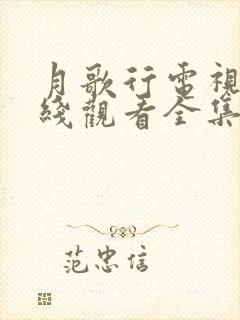 月歌行電視
綫觀看全集
范忠信